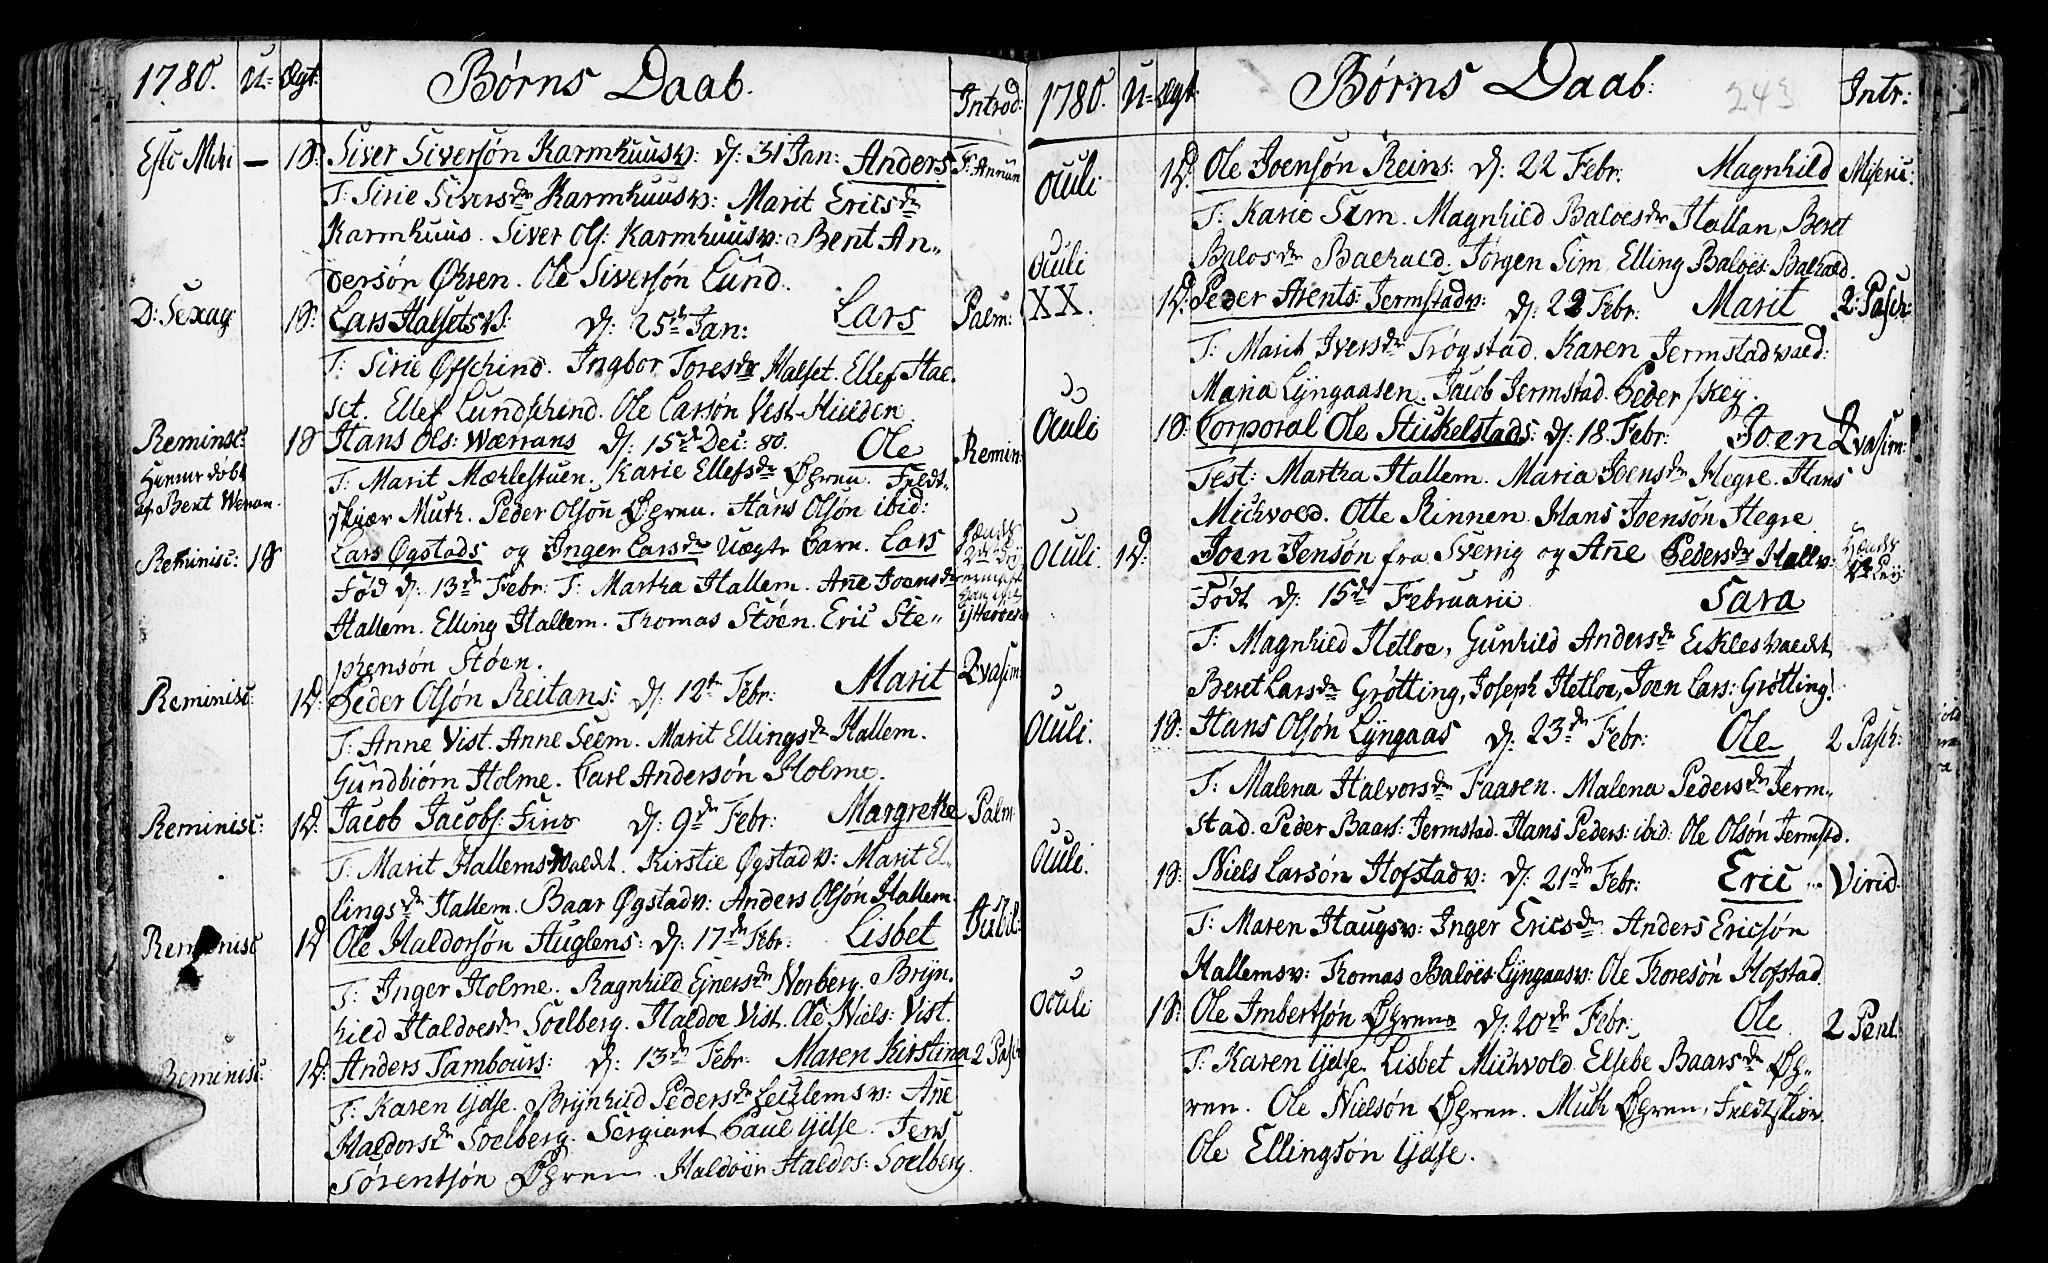 1780. U= Ægt: Børns Daab. Introd:
Esto Mihi — 1S: Siver Siversøn Karmhuusv: d: 31 Jan: Anders F: Annun
T: Sirie Siversdr Karmhuusv: Marit Ericsdr
Karmhuus. Siver Ols: Karmhuusv: Bent An„
dersøn Øhren. Ole Siversøn Lund.
D: Sexag: 1S: Lars Halsetsv: d: 25de Jan: Lars Palm:
T: Sirie Øfschind. Ingbor Toresdr Halset. Ellef Hal
set. Ellef Lundschind. Ole Larsøn Vest-Milden.
Reminsc: 1S Hans Ols: Wærrans d: 15de Dec: 80. Ole Remin:
Hiemmedøbt T: Marit Mæhlestuen. Karie Ellefsdr Øgren. Feldt„
af Bent Werran. skiær Muth. Peder Olsøn Øgren. Hans Olsøn ibid:
Reminisc: 1S Lars Øgstads og Inger Larsdr Uægte Barn. Lars
Fød d: 13de Febr. T: Martha Hallem. Ane Joensdr
Hallem. Elling Hallem. Thomas Støen. Eric Ste„ Ytterøen
phensøn Støen.
Reminisc: 1D: Peder Olsøn Reitans: d: 12te Febr: Marit Qvasim:
T: Anne Vist. Anne Seem. Marit Ellingsdr Hallem.
Gundbiørn Holme. Carl Andersøn Holme.
Reminisc: 1D: Jacob Jacobs: Fins d: 9de Febr: Margrethe Palm:
T: Marit Hallemsvaldt. Kirstie Øgstadv: Marit El„
lingsdr Hallem. Baar Øgstadv: Anders Olsøn Hallem.
Reminisc 1D Ole Haldorsøn Huglens: d: 17de Febr: Lisbet Jubil:
T: Inger Holme. Ragnhild Ejnersdr Norberg. Bryn.
hild Haldoesdr Soelberg. Haldoe Vist. Ole Niels: Vist.
Reminisc: 1D: Anders Tambours: d: 13de Febr: Maren Kirstina 2 Pasc
T: Karen Ydse. Brynhild Pedersdr Leiklemsv: Ane
Haldorsdr Soelberg. Sergiant Paul Ydse. Jens
Sørentsøn Øgren. Haldoer Haldos: Soelberg.
1780. U= Ægt: Børns Daab: 243 Intr:
Oculi 1D: Ole Joensøn Reins: d: 22 Febr. Magnhild Miseric:
T: Karie Sem. Magnhild Baloesdr Hallan, Beret
Oculi Balosdr Balhald. Jørgen Sim, Elling Baloes: Balhald.
XX. 1D: Peder Arents: Jermstadv: d: 22 Febr: Marit 2: Pasch:
T: Marit Iversdr Trøgstad. Karen Jermstadvald:
Maria Lyngaasen. Jacob Jermstad. Peder Skey.
Oculi 1S: Corporal Ole Stikelstads: d: 18. Febr: Joen Qvasim:
Test: Martha Hallem. Maria Joensdr Hegre. Hans
Michvold. Otte Rinnen. Hans Joensøn Hegre
Oculi. 1D: Joen Jensøn fra Sverrig og Ane Pedersdr Hallv:
Født d: 15de Februarii Sara
T: Magnhild Hetloe, Gunhild Andersdr Eiklesvaldt
Beret Larsdr Grøtting, Joseph Hetloe, Joen Lars: Grøtting.
Oculi. 1S: Hans Olsøn Lyngaas d: 23de Febr: Ole 2 Pasch:
T: Malena Halvorsdr Faaren. Malena Pedersdr Jerm„
stad. Peder Baars: Jermstad. Hans Peders: ibid: Ole Olsøn Jermstd.
Oculi. 1S: Niels Larsøn Hofstadv: d: 21de Febr: Eric Virid.
T: Maren Haugsv: Inger Ericsdr Anders Ericsøn
Hallemsv: Thomas Baloes Lyngaasv: Ole Thoresøn Hofstad
Oculi 1S: Ole Imbertsøn Øgrens d: 20de Febr: Ole 2 Pent
T: Karen Ydse. Lisbet Michvold. Elsebe Baarsdr Øg„
ren. Ole Nielsøn Øgren. Muth Øgren, Feldtskiær.
Ole Ellingsøn Ydse.